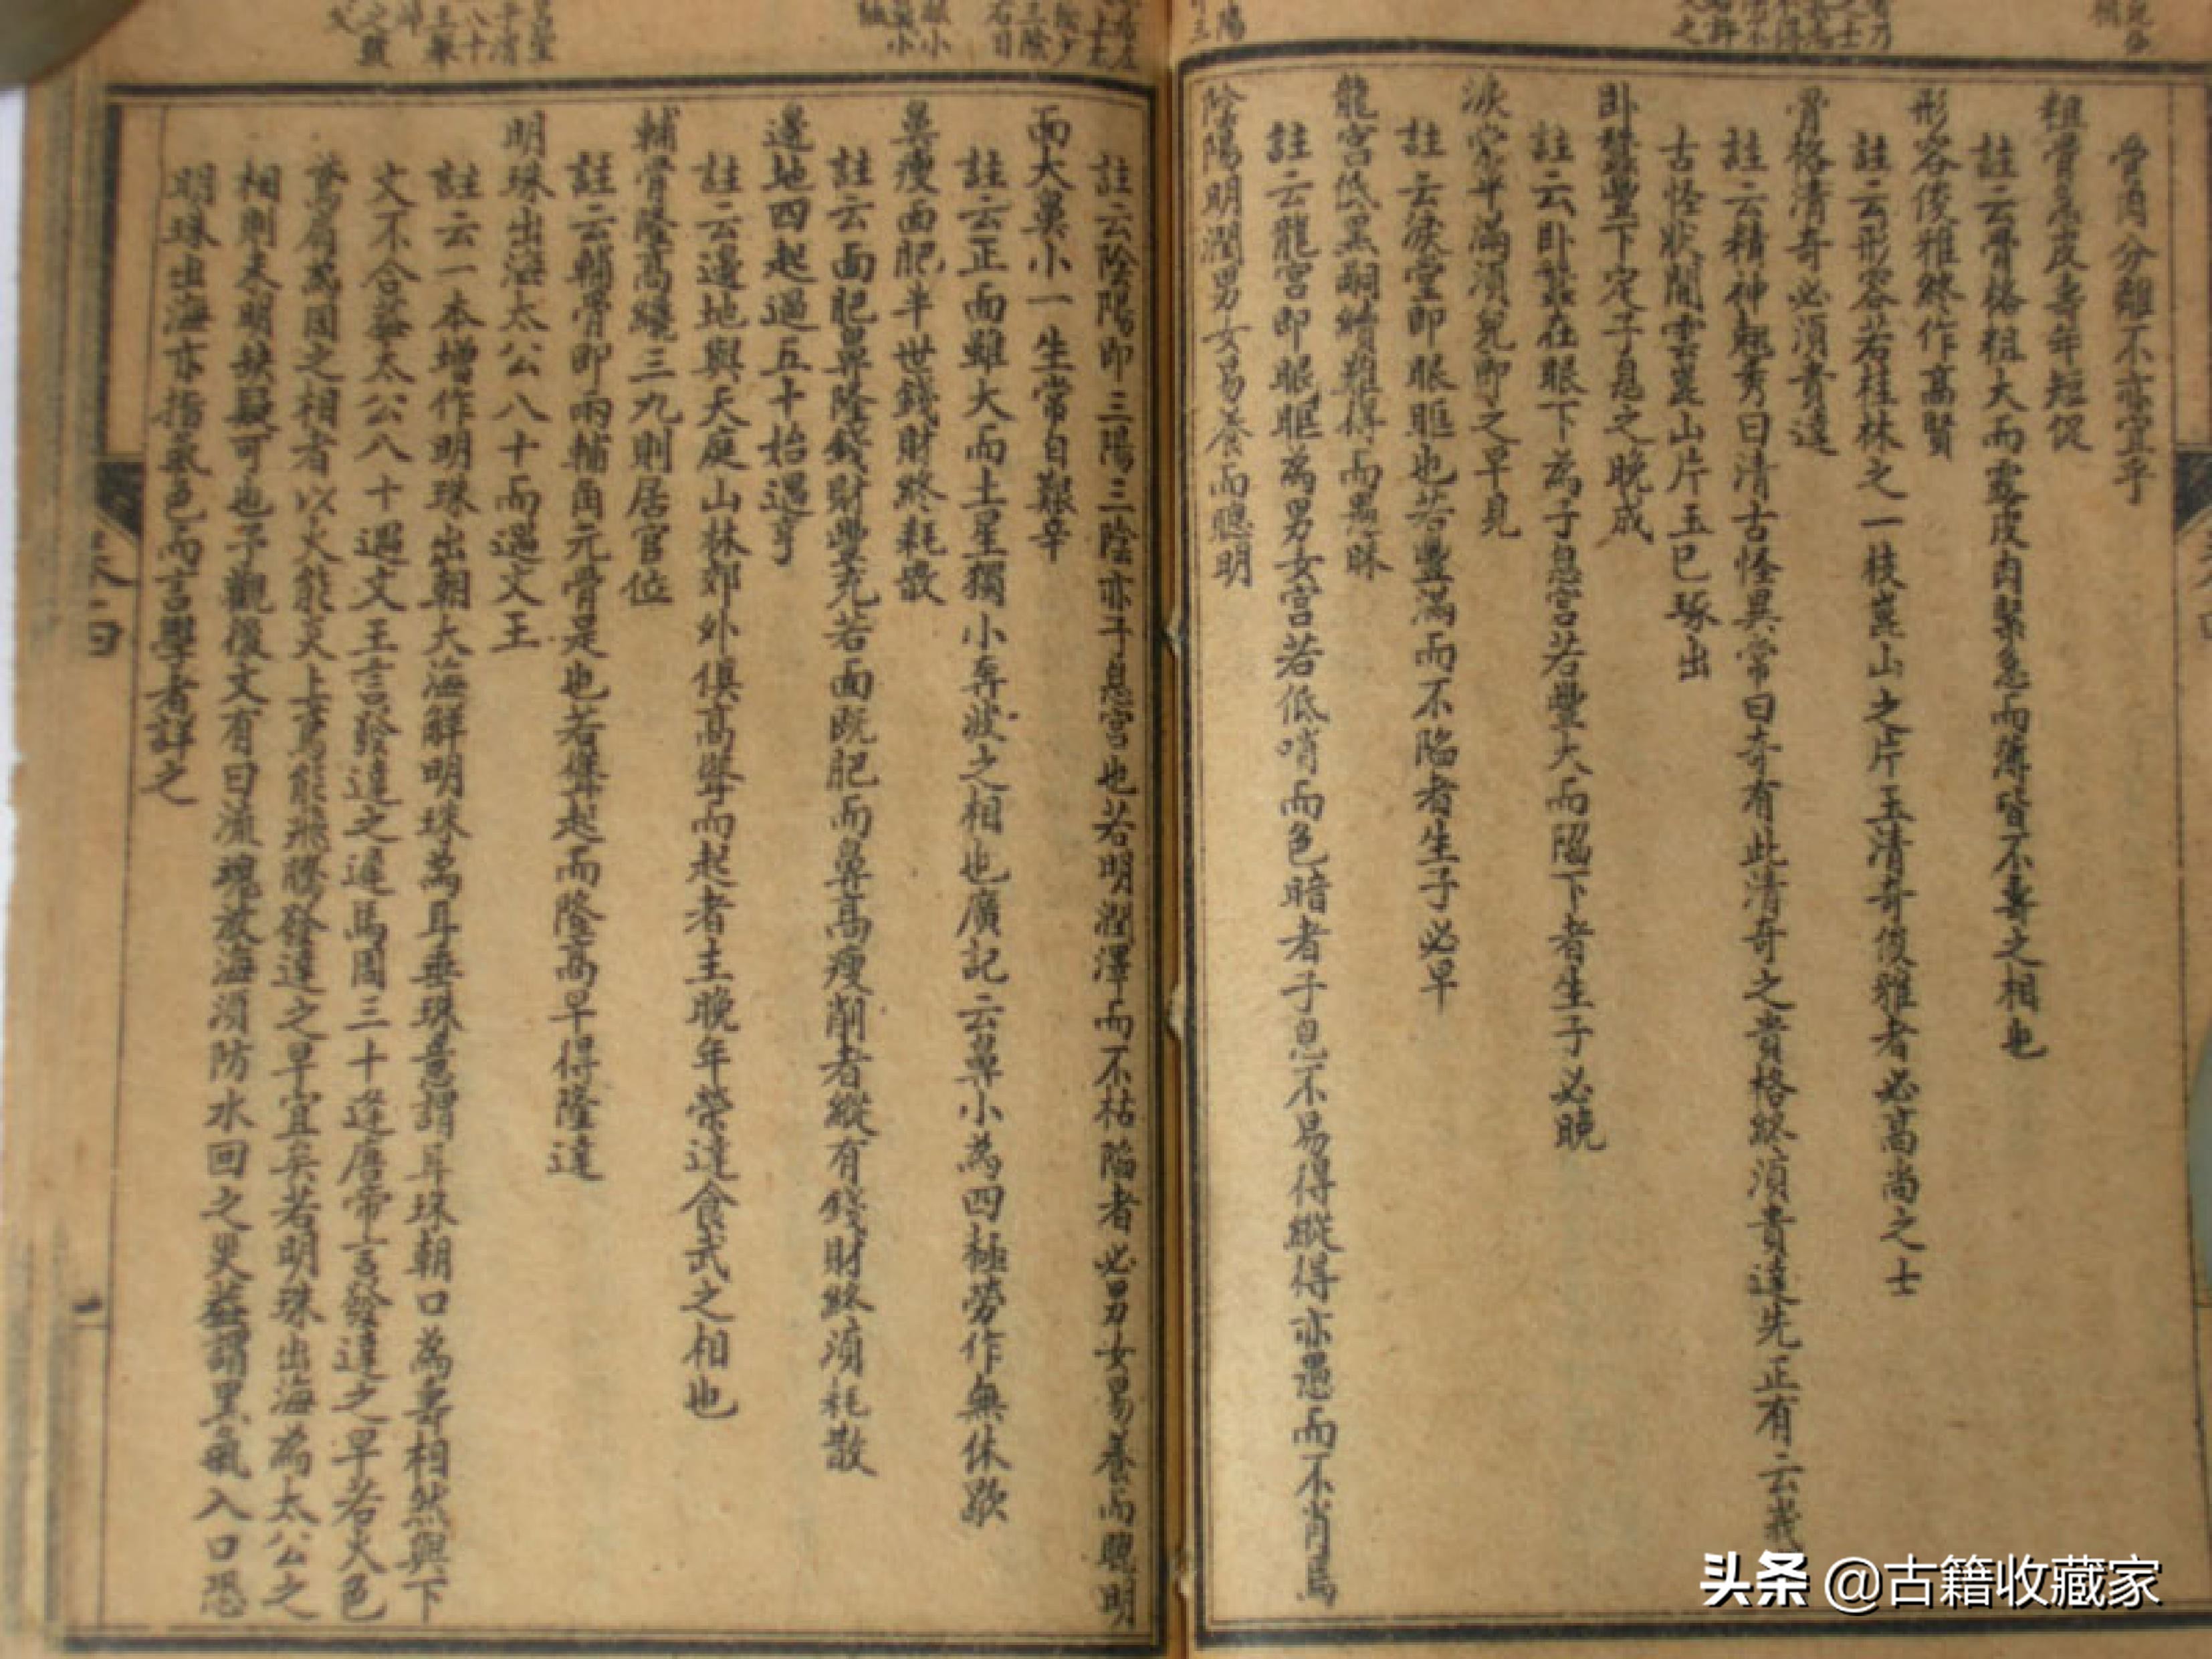 骨肉分離不亦宜乎
粗骨急皮壽年短促
註云骨格粗大而露皮肉緊急而薄皆不壽之相也
形容俊雅終作高賢
註云形容若桂林之一枝崑山之片玉清奇俊雅者必高尚之士
骨格清奇必須貴達
註云精神翹秀曰清古怪異常曰奇有此清奇之貴格終須貴達先正有云我
古怪狀閒雲崑山片玉已琢出
卧蠶豐下定子息之晚成
註云卧蠶在眼下為子息宮若豐大而陷下者生子必晚
淚堂平滿須兒郎之早見
註云淚堂即眼眶也若豐滿而不陷者生子必早
龍宮低黑嗣續難得而愚昧
註云龍宮即眼眶為男女宮若低哨而色暗者子息不易得縱得亦愚而不肖焉
陰陽明潤男女易養而聰明
註云陰陽即三陽三陰亦子息宮也若明潤澤而不枯陷者必男女易養而聰明
面大鼻小一生常自艱辛
註云正面雖大而土星獨小奔波之相也廣記云鼻小為四極勞作無休歇
鼻瘦面肥半世錢財終耗散
註云面肥鼻隆錢財豐充若面既肥而鼻高瘦削者縱有錢財終須耗散
邊地四起過五十始遇亨
註云邊地與天庭山林郊外俱高聳而起者主晚年榮達食武之相也
輔骨隆高纔三九則居官位
註云輔骨即兩輔角元骨是也若聳起而隆高早得隆達
明珠出海太公八十而遇文王
註云一本增作明珠出朝大海解明珠為耳垂珠意謂耳珠朝口為壽相然與下
文不合蓋太公八十遇文王言發達之遲馬周三十逢唐帝言發達之早若火色
鳶肩為周之相者以火能炎上鳶能飛騰發達之早宜矣若明珠出海為太公之
相則未明缺疑可也予觀後文有曰流魂放海須防水回之災蓋謂黑氣入口恐
明珠出海亦指氣色而言學者詳之
卷四
一
头条 @古籍收藏家